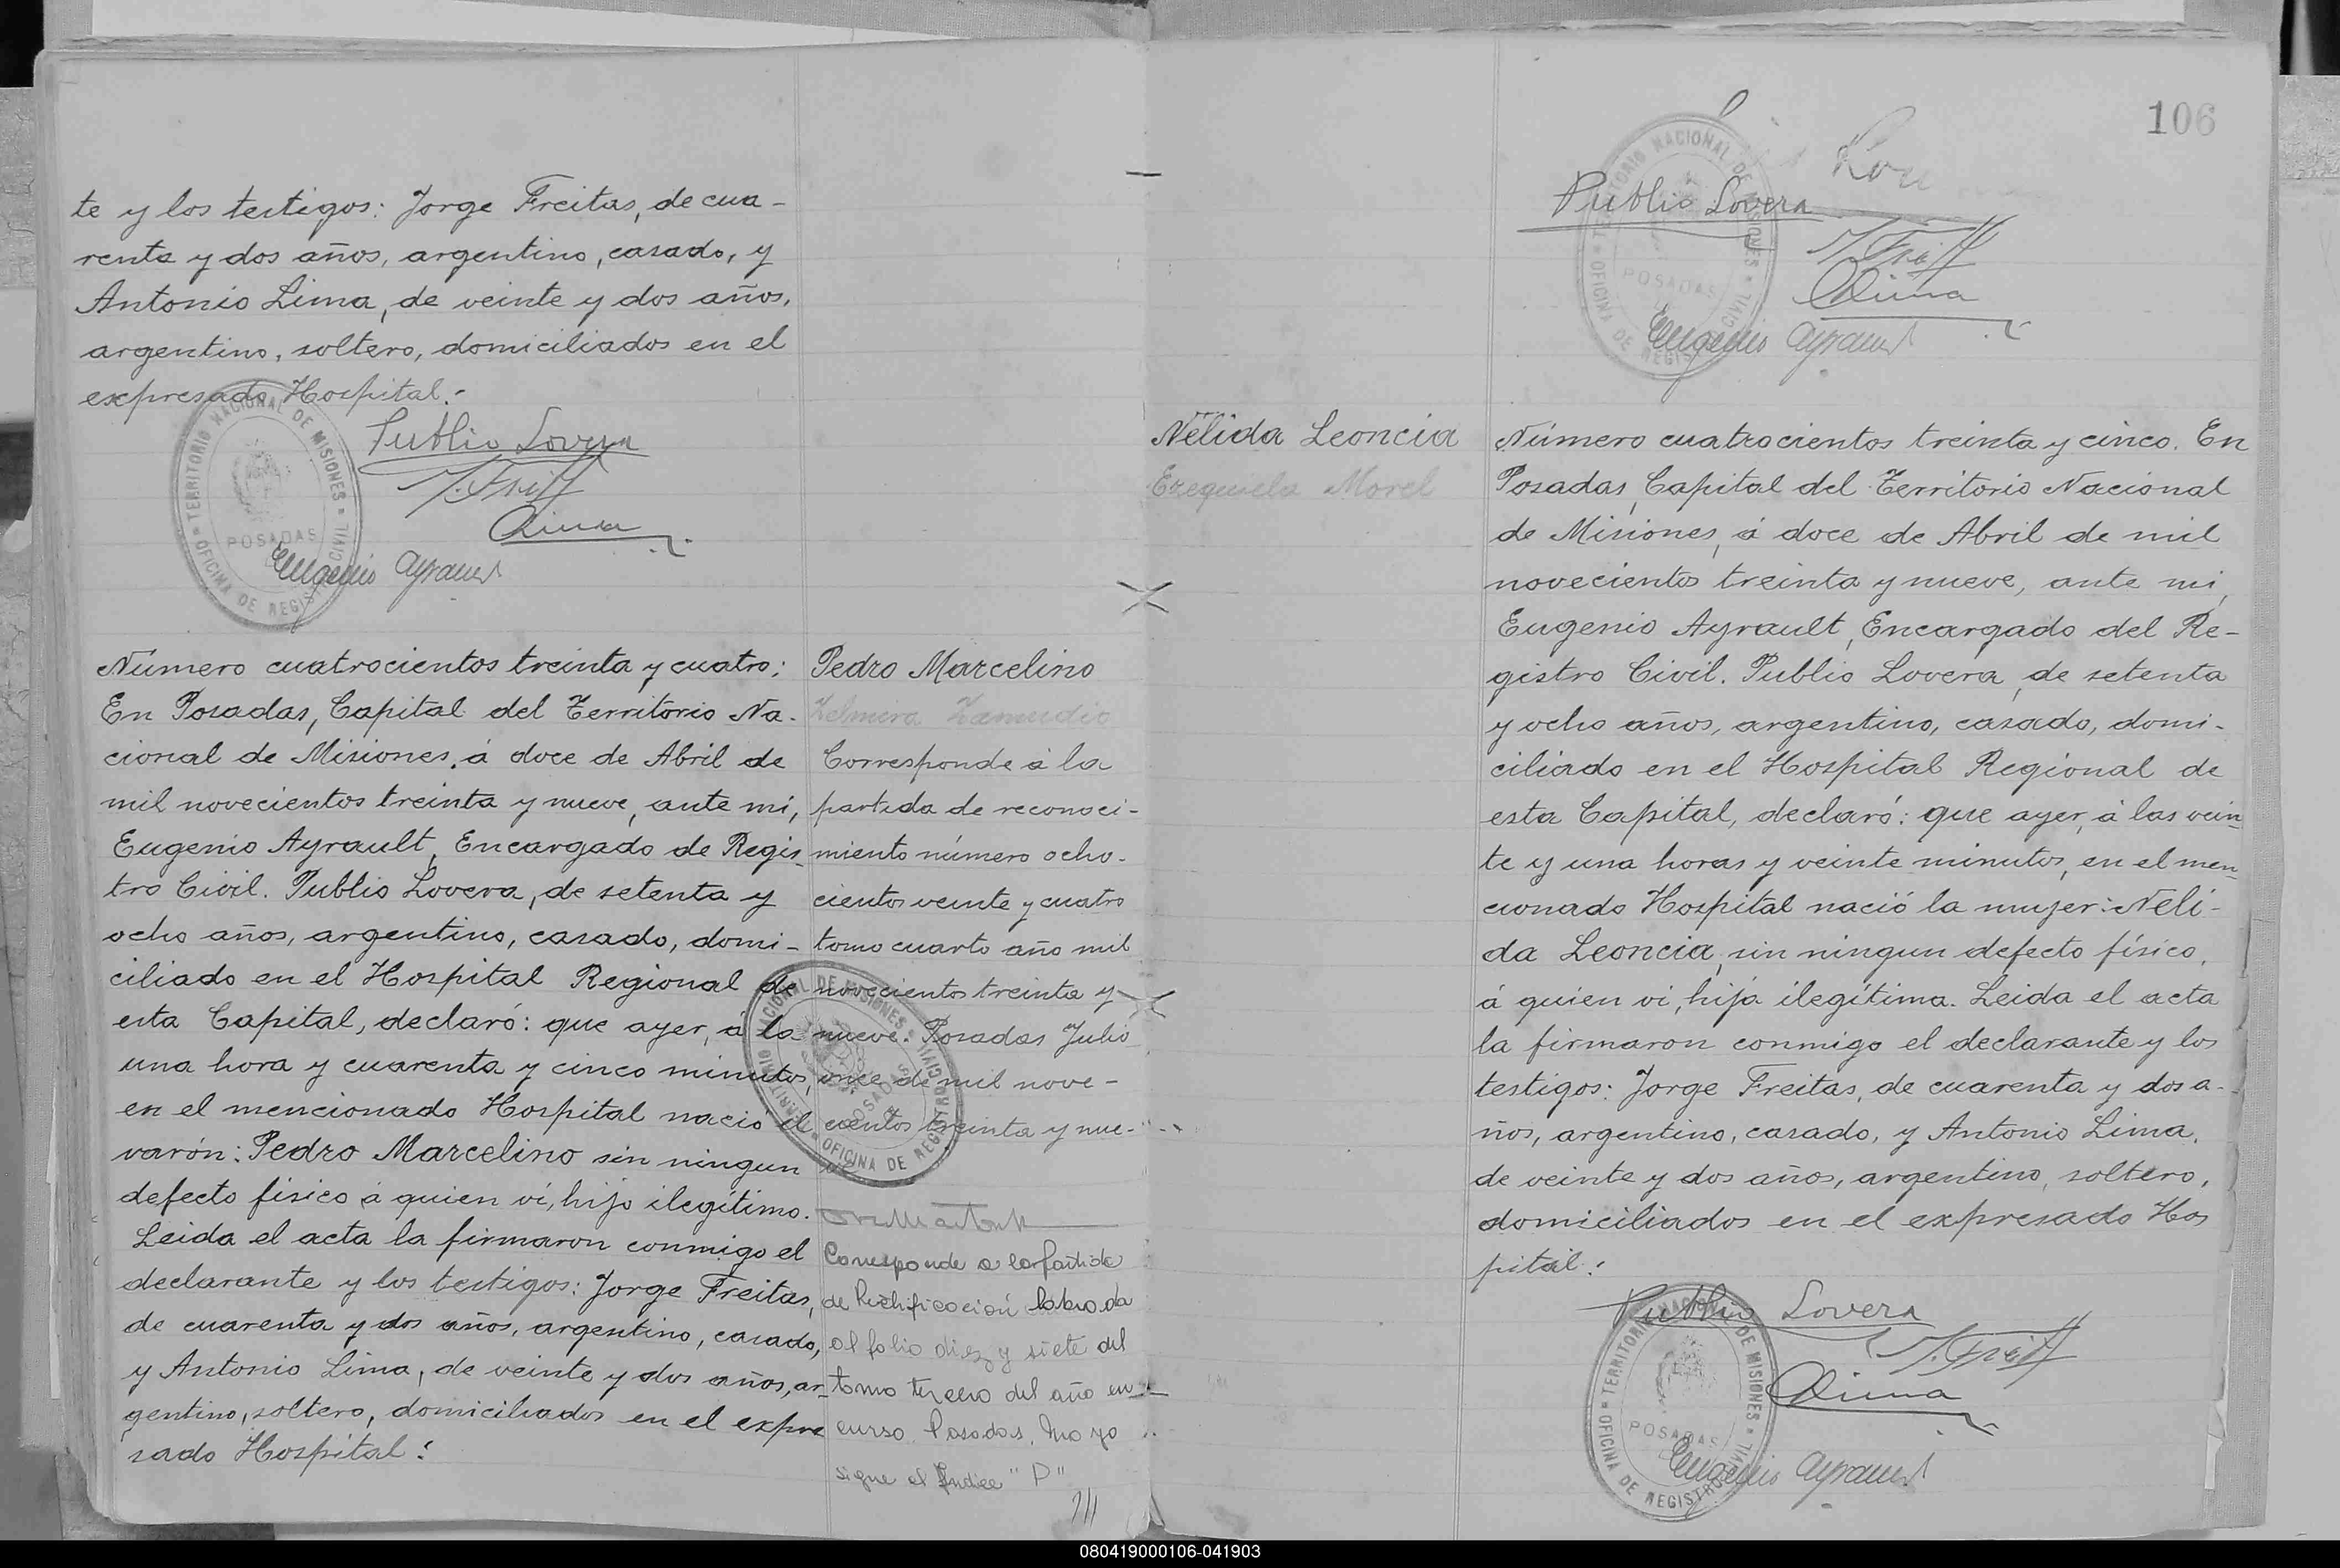 te y los testigos: Jorge Freitas, de cua-
renta y dos años, argentino, casado, y
Antonio Lima, de veinte y dos años,
argentino, soltero, domiciliados en el
expresado Hospital.-
TERRITORIO NACIONAL DE MISIONES
POSADAS
OFICINA DE REGISTRO CIVIL
Publio Lovera
Lima
Eugenio Ayrault
Número cuatrocientos treinta y cuatro:
En Posadas, Capital del Territorio Na-
cional de Misiones, á doce de Abril de
mil novecientos treinta y nueve, ante mi,
Eugenio Ayrault, Encargado de Regis-
tro Civil. Publio Lovera, de setenta y
ocho años, argentino, casado, domi-
ciliado en el Hospital Regional de
esta Capital, declaró: que ayer, á la
una hora y cuarenta y cinco minutos,
en el mencionado Hospital nació el
varón: Pedro Marcelino sin ningun
defecto físico á quien ví, hijo ilegítimo.
Leida el acta la firmaron conmigo el
declarante y los testigos: Jorge Freitas,
de cuarenta y dos años, argentino, casado,
y Antonio Lima, de veinte y dos años, ar-
gentino, soltero, domiciliados en el expre
sado Hospital:
Pedro Marcelino
Zelmira Zamudio
Corresponde á la
partida de reconoci-
miento número ocho-
cientos veinte y cuatro
tomo cuarto año mil
novecientos treinta y
nueve. Posadas Julio
once de mil nove-
cientos treinta y nue-
ve
TERRITORIO NACIONAL DE MISIONES
POSADAS
OFICINA DE REGISTRO CIVIL
Corresponde a la partida
de Rectificación labrada
al folio diez y siete del
tomo tercero del año en
curso. Posadas, Mayo
sigue el Indice "P"
106
TERRITORIO NACIONAL DE MISIONES
POSADAS
OFICINA DE REGISTRO CIVIL
Publio Lovera
Lima
Eugenio Ayrault
Nélida Leoncia
Ezequiela Morel
Número cuatrocientos treinta y cinco. En
Posadas, Capital del Territorio Nacional
de Misiones, á doce de Abril de mil
novecientos treinta y nueve, ante mi,
Eugenio Ayrault, Encargado del Re-
gistro Civil. Publio Lovera, de setenta
y ocho años, argentino, casado, domi-
ciliado en el Hospital Regional de
esta Capital, declaró: que ayer, á las vein-
te y una horas y veinte minutos, en el men-
cionado Hospital nació la mujer: Néli-
da Leoncia, sin ningun defecto físico,
á quien ví, hija ilegítima. Leida el acta
la firmaron conmigo el declarante y los
testigos: Jorge Freitas, de cuarenta y dos a-
ños, argentino, casado, y Antonio Lima,
de veinte y dos años, argentino, soltero,
domiciliados en el expresado Hos
pital:
Publio Lovera
Lima
TERRITORIO NACIONAL DE MISIONES
POSADAS
OFICINA DE REGISTRO CIVIL
Eugenio Ayrault
080419000106-041903